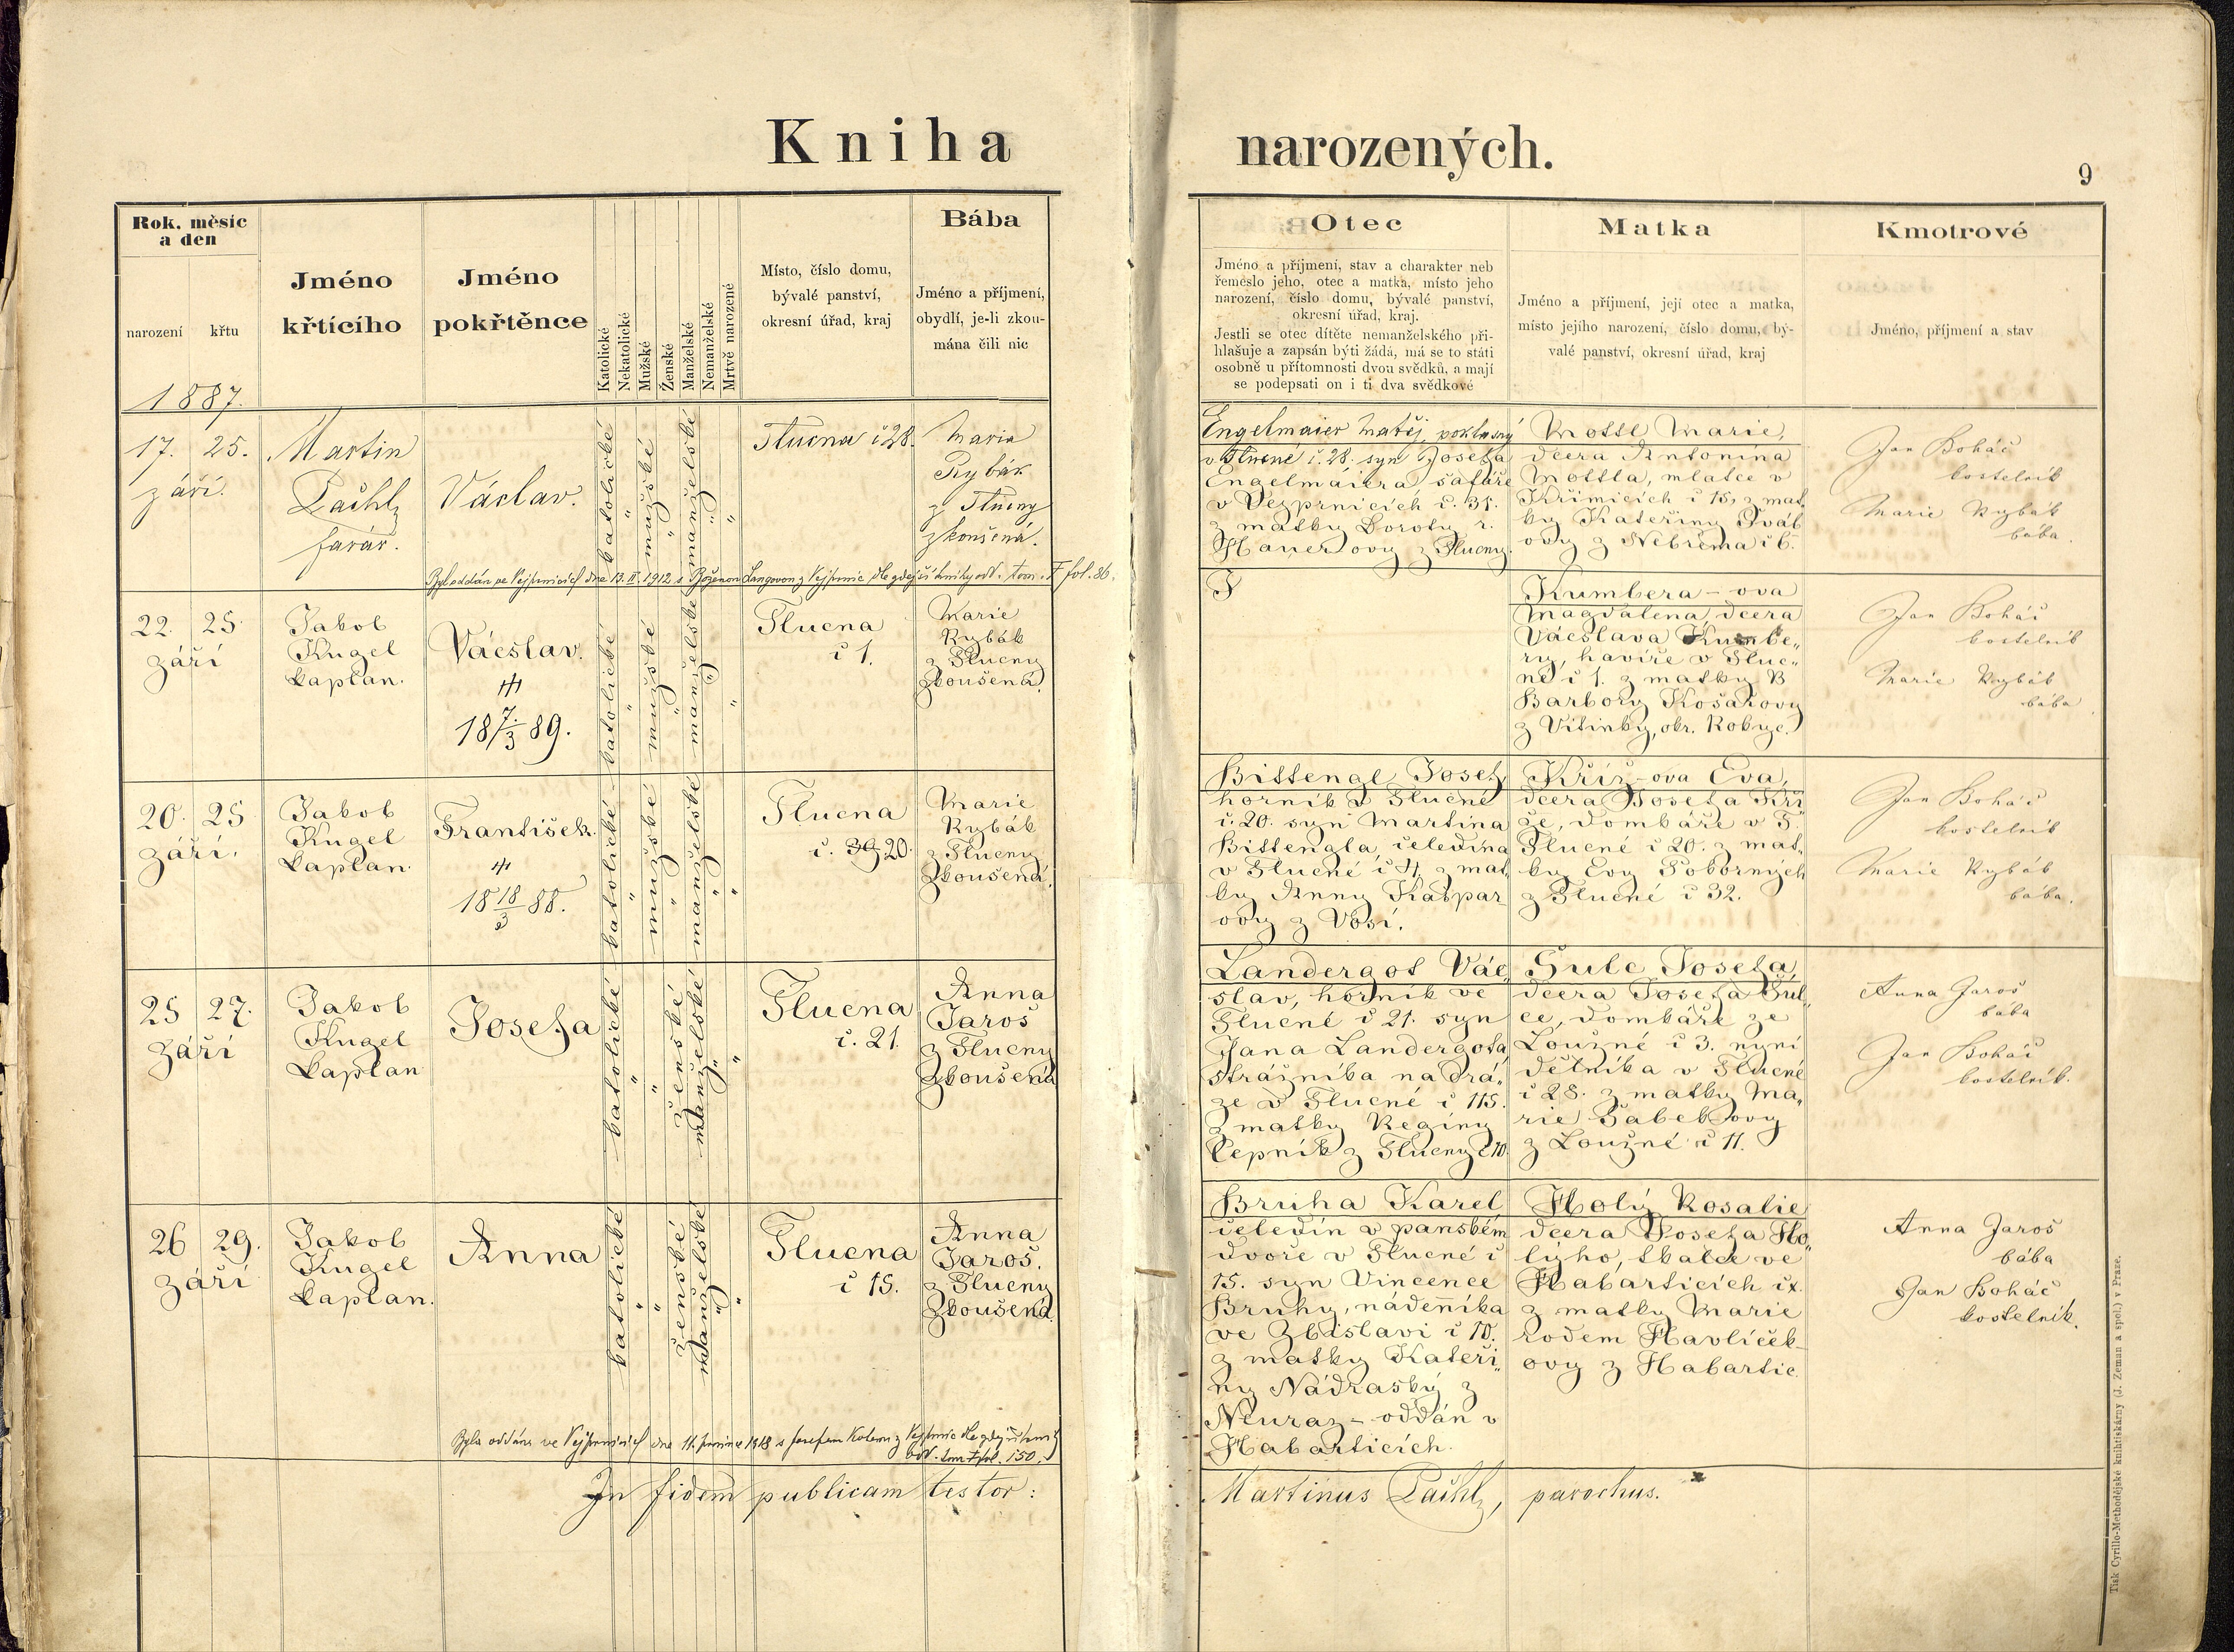 Kniha narozených.
9
Rok, měsíc
a den
narození
křtu
Jméno
křtícího
Jméno
pokřtěnce
Katolické
Nekatolické
Mužské
Ženské
Manželské
Nemanželské
Mrtvě narozené
Místo, číslo domu,
bývalé panství,
okresní úřad, kraj
Bába
Jméno a příjmení,
obydlí, je-li zkou-
mána čili nic
Otec
Jméno a příjmení, stav a charakter neb
řemeslo jeho, otec a matka, místo jeho
narození, číslo domu, bývalé panství,
okresní úřad, kraj.
Jestli se otec dítěte nemanželského při-
hlašuje a zapsán býti žádá, má se to státi
osobně u přítomnosti dvou svědků, a mají
se podepsati on i ti dva svědkové
Matka
Jméno a příjmení, její otec a matka,
místo jejího narození, číslo domu, bý-
valé panství, okresní úřad, kraj
Kmotrové
Jméno, příjmení a stav
1887.
17. 25.
září.
Martin
farář.
Václav.
katolické
"
mužské
"
manželské
"
"
Tlucna č 28.
Maria
Rybák
z Tlucny
zkoušená.
Engelmaier Matěj, poklasný
v Tlucné č. 28. syn Josefa
Engelmaiera šafáře
v Vejprnicích č. 31.
z matky Doroty r.
Hauerovy z Tlucny.
Mottl Marie,
dcera Antonína
Mottla, mlatce v
Křimicích č 15, z mat
ky Kateřiny
ovy z Nebřema č 6.
Jan Boháč
kostelník
Marie Rybák
bába.
Byl oddán ve Vejprnicích dne 13. II. 1912 s Boženou Langovou z Vejprnic dle zdejší knihy odd. tom. I fol. 86.
22. 25.
září
Jakob
Kugel
kaplan.
Václav.
†††
18 7/3 89.
katolické
"
mužské
"
manželské
"
"
Tlucna
č 1.
Marie
Rybák
z Tlucny
zkoušená.
Kumbera-ova
Magdalena, dcera
Václava Kumbe„
ry, havíře v Tluc„
né č 1. z matky
Barbory Košařovy
z Vitinky, okr. Rokyc.
Jan Boháč
kostelník
Marie Rybák
bába
20. 25
září.
Jakob
Kugel
kaplan.
František.
††
18 18/3 88.
katolické
"
mužské
"
manželské
"
"
Tlucna
č. 39 20.
Marie
Rybák
z Tlucny
zkoušená.
Bittengl Josef,
horník v Tlucné
č. 20. syn Martina
Bittengla, čeledína
v Tlucné č 4 z mat
ky Anny Kašpar
ovy z Vosí.
Kříž-ova Eva,
dcera Josefa Kří
že, domkáře v
Tlucné č 20. z mat„
ky Evy Poborných
z Tlucné č 32.
Jan Boháč
kostelník
Marie Rybák
bába.
25 27.
září
Jakob
Kugel
kaplan
Josefa
katolické
"
"
ženské
manželské
"
"
Tlucna
č. 21.
Anna
Jaroš
z Tlucny
zkoušená
Landergot Vác„
slav, horník ve
Tlucné č 21. syn
Jana Landergota
strážníka na drá„
ze v Tlucné č 115.
z matky Reginy
Čepník z Tlucny č 10.
Šulc Josefa,
dcera Josefa Šul„
ce, domkáře ze
Loužné č 3. nyní
dělníka v Tlucné
č 28. z matky Ma„
rie Sabekovy
z Loužné č 11.
Anna Jaroš
bába
Jan Boháč
kostelník.
26 29.
září
Jakob
Kugel
kaplan.
Anna
katolické
"
"
ženské
manželské
"
"
Tlucna
č 15.
Anna
Jaroš.
z Tlucny
zkoušená.
Bruha Karel
čeledín v panském
dvoře v Tlucné č
15. syn Vincence
Bruhy, nádenníka
ve Zbislavi č 10.
z matky Kateři„
ny Nádraský z
Neuraz – oddán v
Habarticích.
Holý Rosalie
dcera Josefa Ho„
lýho, tkalce ve
Habarticích č x.
z matky Marie
rodem Havlíček-
ovy z Habartic.
Anna Jaroš
bába
Jan Boháč
kostelník.
Byla oddána ve Vejprnicích dne 11. 1918 s Josefem z Vejprnic dle zdejší knihy
odd. tom I fol. 150.
In fidem publicam testor:
Martinus parochus.
Tisk Cyrillo-Methodějské knihtiskárny (J. Zeman a spol.) v Praze.